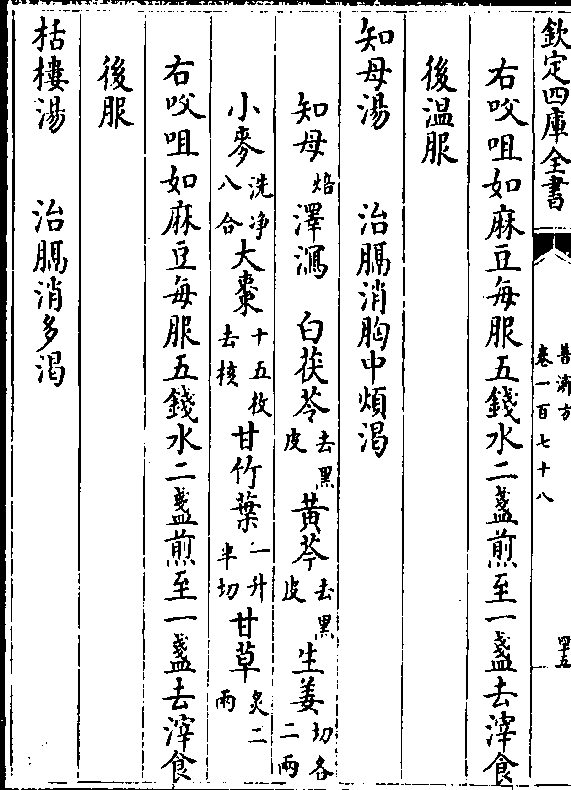 欽定四庫全書
普濟方
卷一百七十八
四十五
右㕮咀如麻豆每服五錢水二盞煎至一盞去滓食
後温服
知母湯　治膈消胸中煩渴
知母焙澤瀉　白茯苓去黑皮黄芩去黑皮生姜切各二兩
小麥洗浄八合大棗十五枚去核甘竹葉一升半切甘草炙二兩
右㕮咀如麻豆每服五錢水二盞煎至一盞去滓食
後服
栝樓湯　治膈消多渴